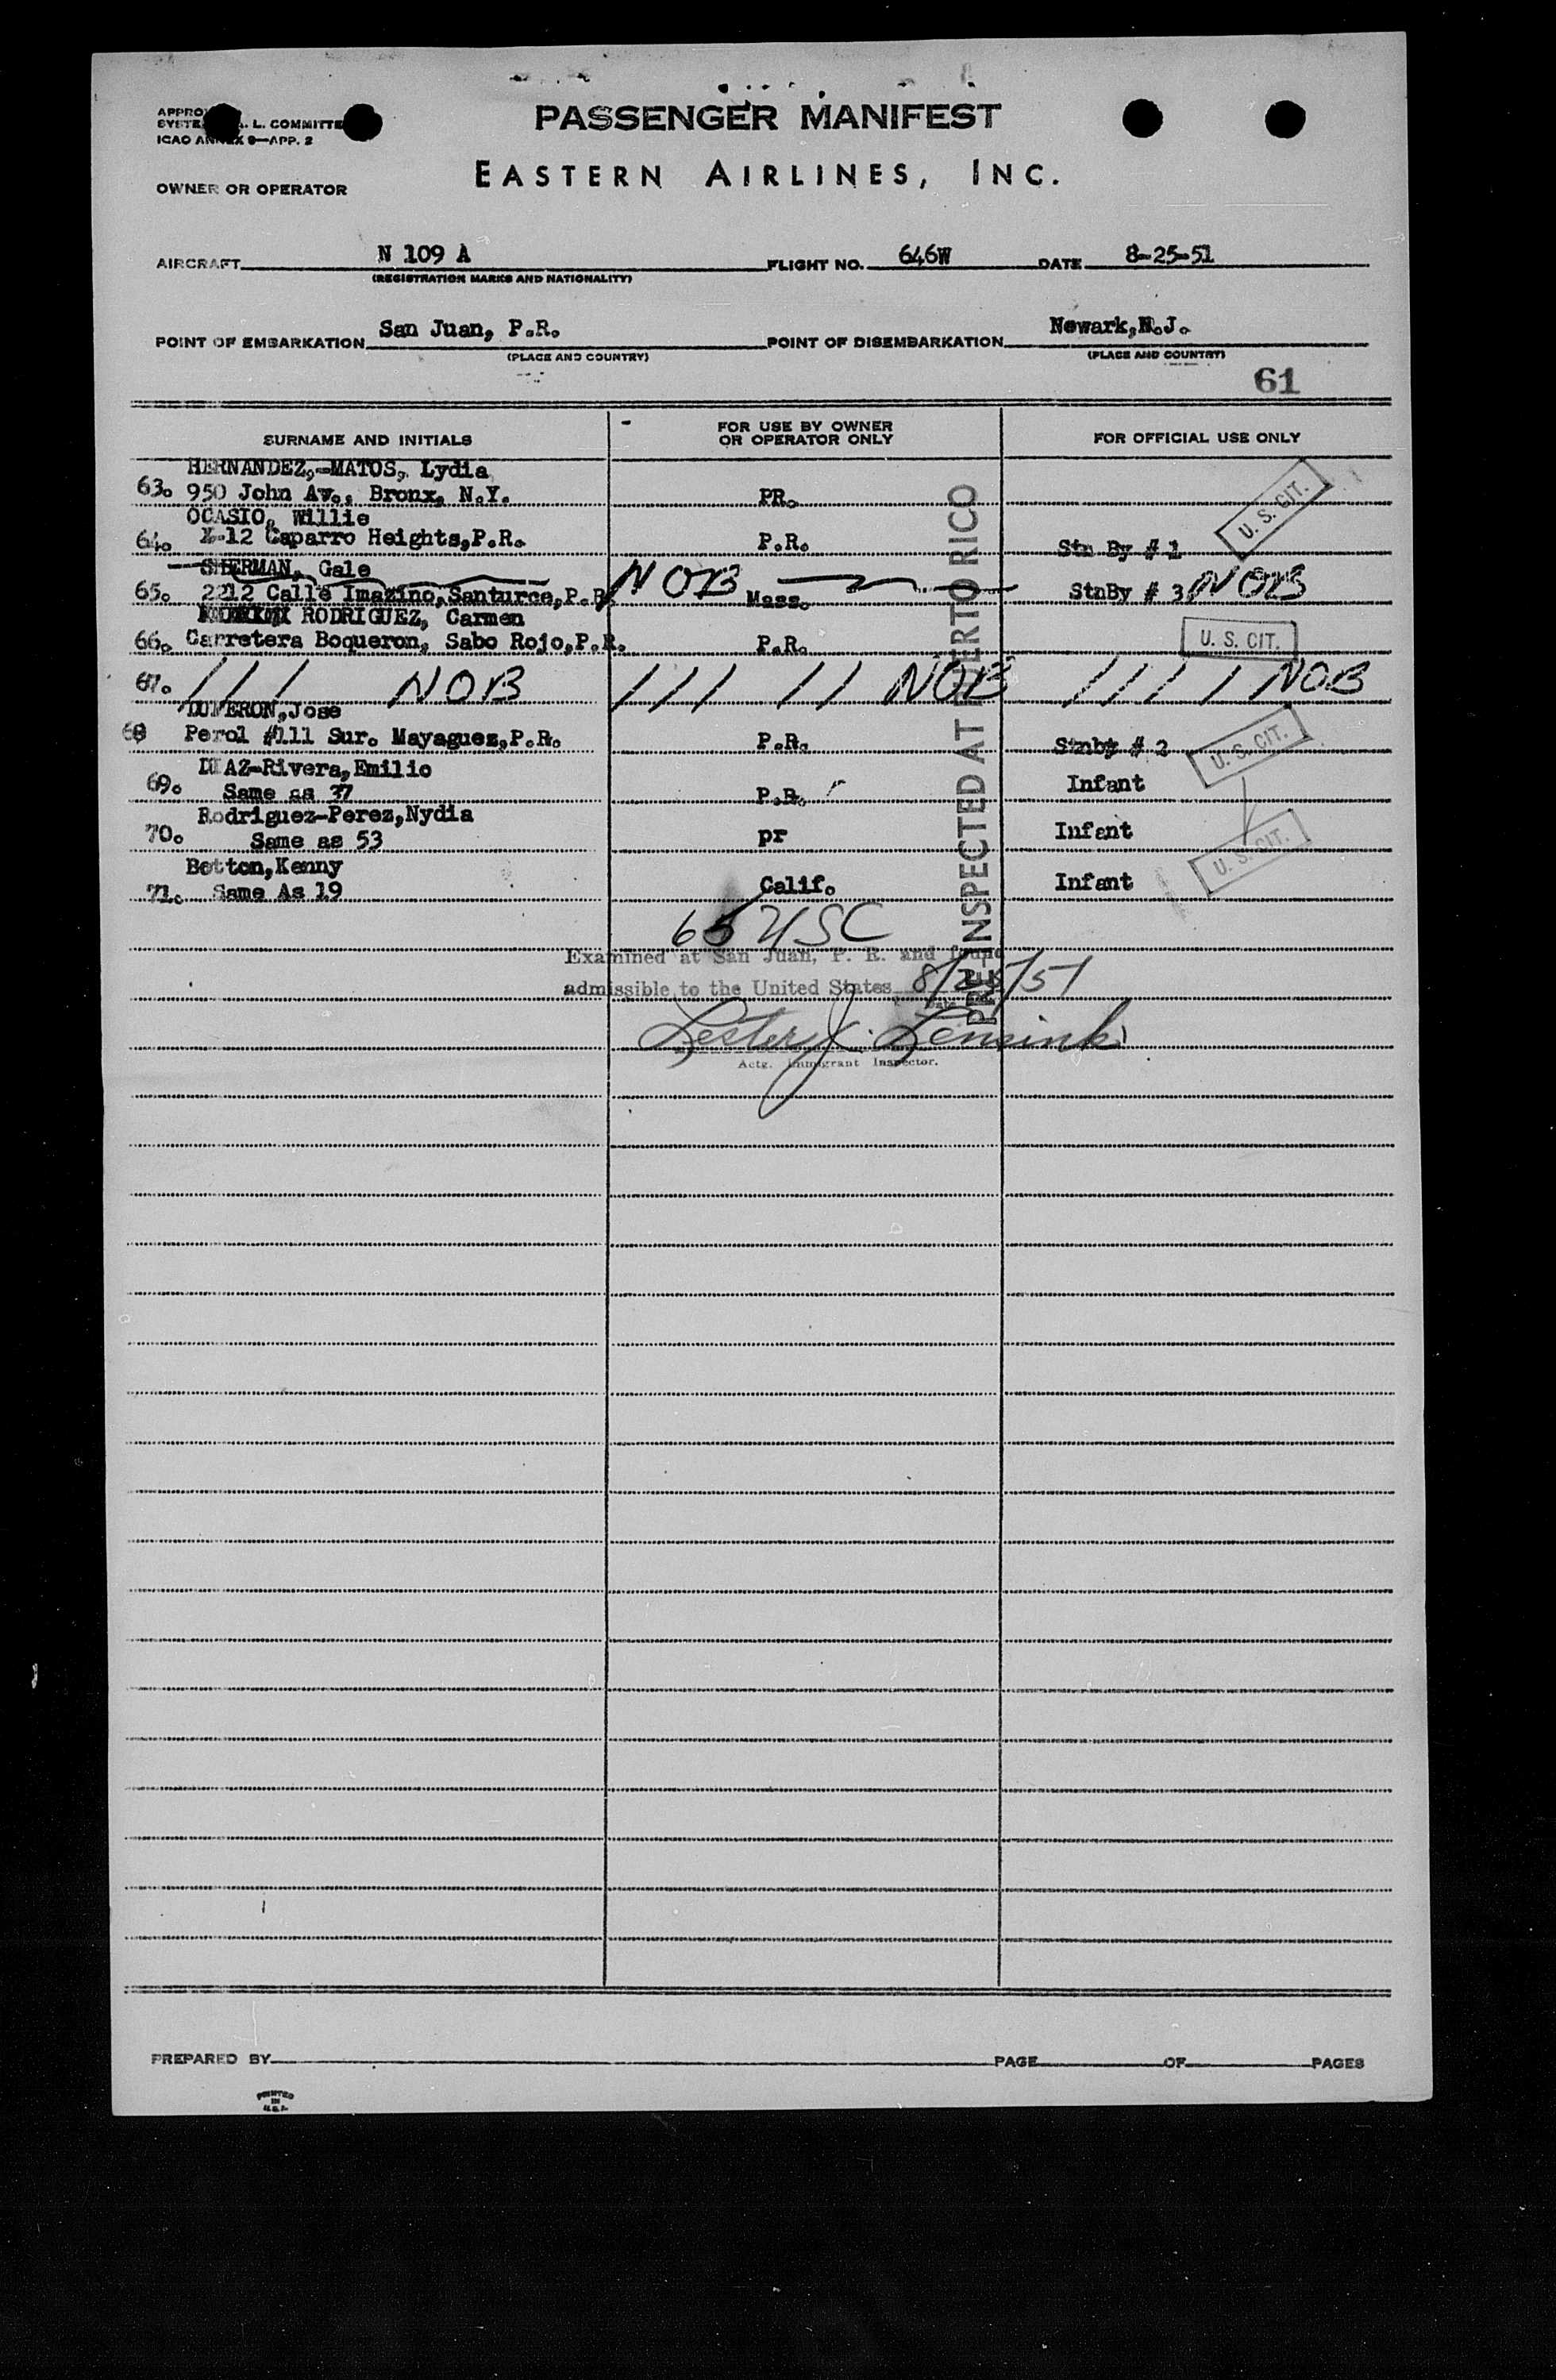 PASSENGER MANIFEST
L. COMMITTE
ICAO ANNEX 9—APP. 2
EASTERN AIRLINES, INC.
OWNER OR OPERATOR
AIRCRAFT N 109 A FLIGHT NO. 646W DATE 8-25-51
(REGISTRATION MARKS AND NATIONALITY)
POINT OF EMBARKATION San Juan, P.R. POINT OF DISEMBARKATION Newark,N.J.
(PLACE AND COUNTRY) (PLACE AND COUNTRY)
61
SURNAME AND INITIALS FOR USE BY OWNER OR OPERATOR ONLY FOR OFFICIAL USE ONLY
HERNANDEZ,-MATOS, Lydia
63. 950 John Av., Bronx, N.Y. PR. U. S. CIT.
OCASIO, Willie
64. -12 Caparro Heights,P.R. P.R. Stn By # 1
SHERMAN, Gale NOB
65. 2212 Calle Imazino,Santurce,P.R. Mass. StnBy # 3 NOB
RODRIGUEZ, Carmen
66. Carretera Boqueron, Sabo Rojo,P.R. P.R. U. S. CIT.
67. / / / NOB / / / / / NOB / / / / / NOB
DUMERON,Jose
68 Perol #111 Sur. Mayaguez,P.R. P.R. Stnby # 2 U. S. CIT.
DIAZ-Rivera,Emilio
69. Same as 37 P.R. Infant
Rodriguez-Perez,Nydia
70. Same as 53 pr Infant U. S. CIT.
Botton,Kenny
71. Same As 19 Calif. Infant
PRE-INSPECTED AT PUERTO RICO
65 USC
Examined at San Juan, P. R. and found
admissible to the United States 8/25/51
Date
Lester J. Lensink
Actg. Immigrant Inspector.
PREPARED BY PAGE OF PAGES
PRINTED
IN
U.S.A.